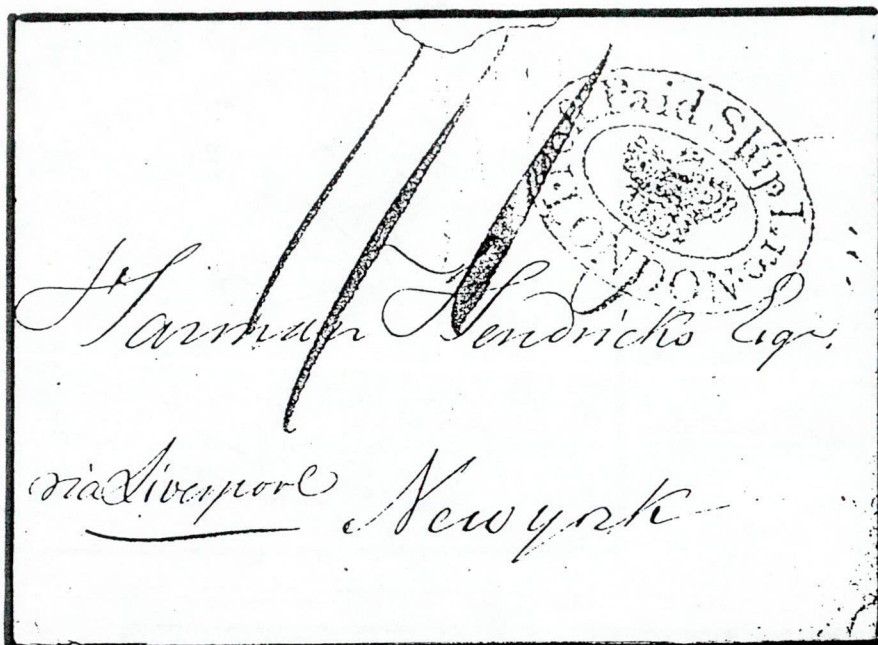 Paid Ship Lr LONDON
Harman Hendricks Esqr.
via Liverpool
Newyork